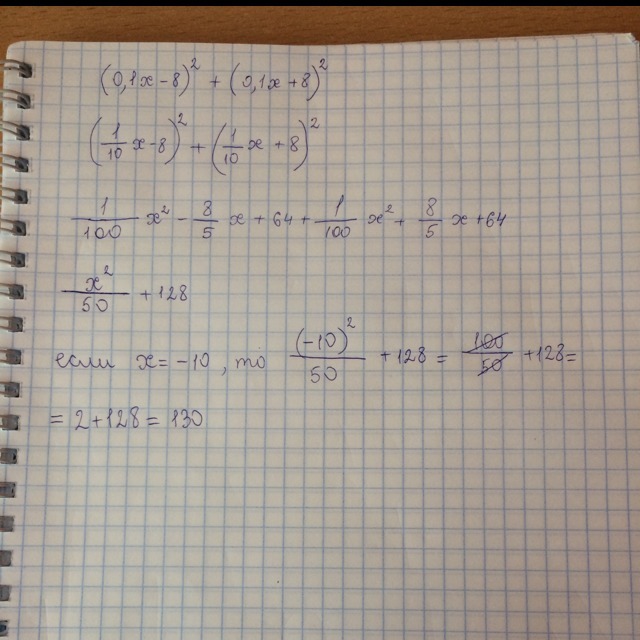 (0,1x-8)² + (0,1x+8)²
(1/10 x-8)² + (1/10 x + 8)²
1/100 x² - 8/5 x + 64 + 1/100 x² + 8/5 x + 64
x²/50 + 128
если x = -10, то (-10)²/50 + 128 = 100/50 + 128 =
= 2 + 128 = 130